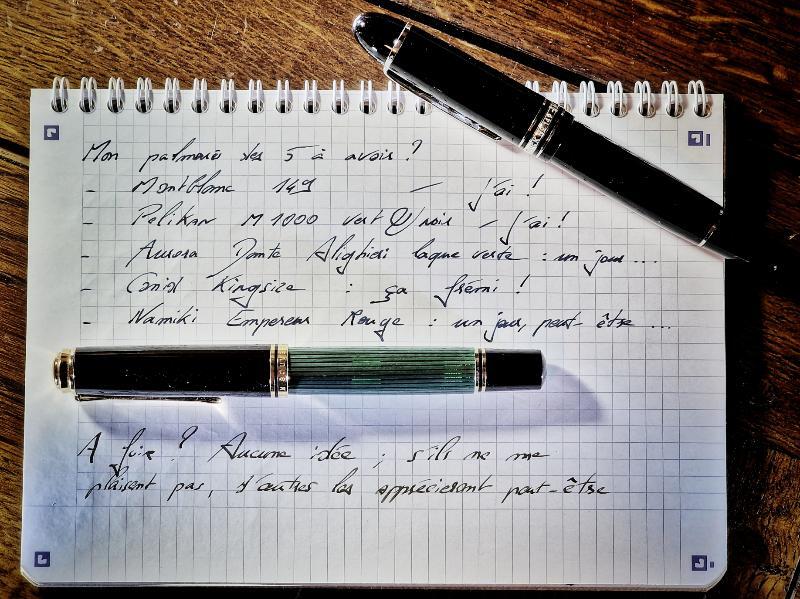 Mon palmarès des 5 à avoir ?
- Montblanc 149 - j'ai !
- Pelikan M1000 vert & noir - j'ai !
- Aurora Dante Alighieri laque verte : un jour ...
- Conid Kingsize : ça frémi !
- Namiki Empereur Rouge : un jour, peut-être ...
A fuir ? Aucune idée ; s'ils ne me
plaisent pas, d'autres les apprécieront peut-être